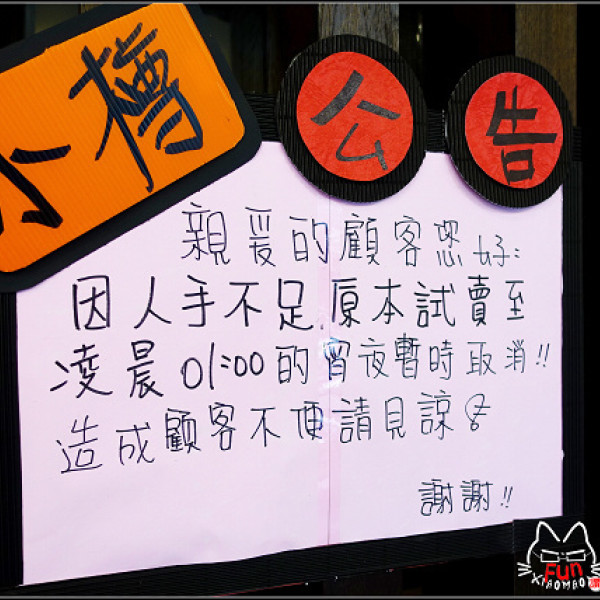 小樽
公告
親爱的顧客您好:
因人手不足,原本試賣至
凌晨01:00的宵夜暫時取消!!
造成顧客不便請見諒
謝謝!!
Fun
XIAOMAO